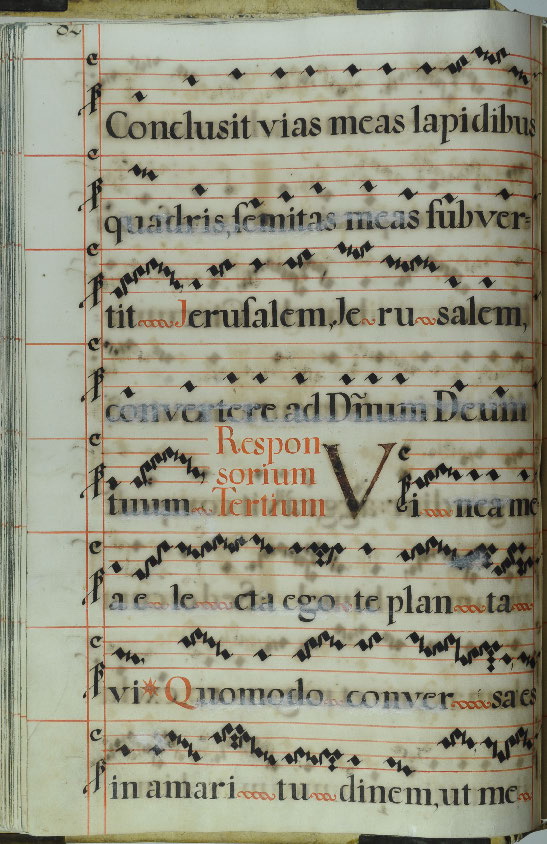 Conclusit vias meas lapidibus
quadris, semitas meas subver=
tit Jerusalem, Je ru salem,
convertere ad Dñum Deum
Respon
sorium
tuum Tertium Vi nea me
a e le cta ego te plan ta
vi * Quomodo conver sa es
in amari tu dinem, ut me